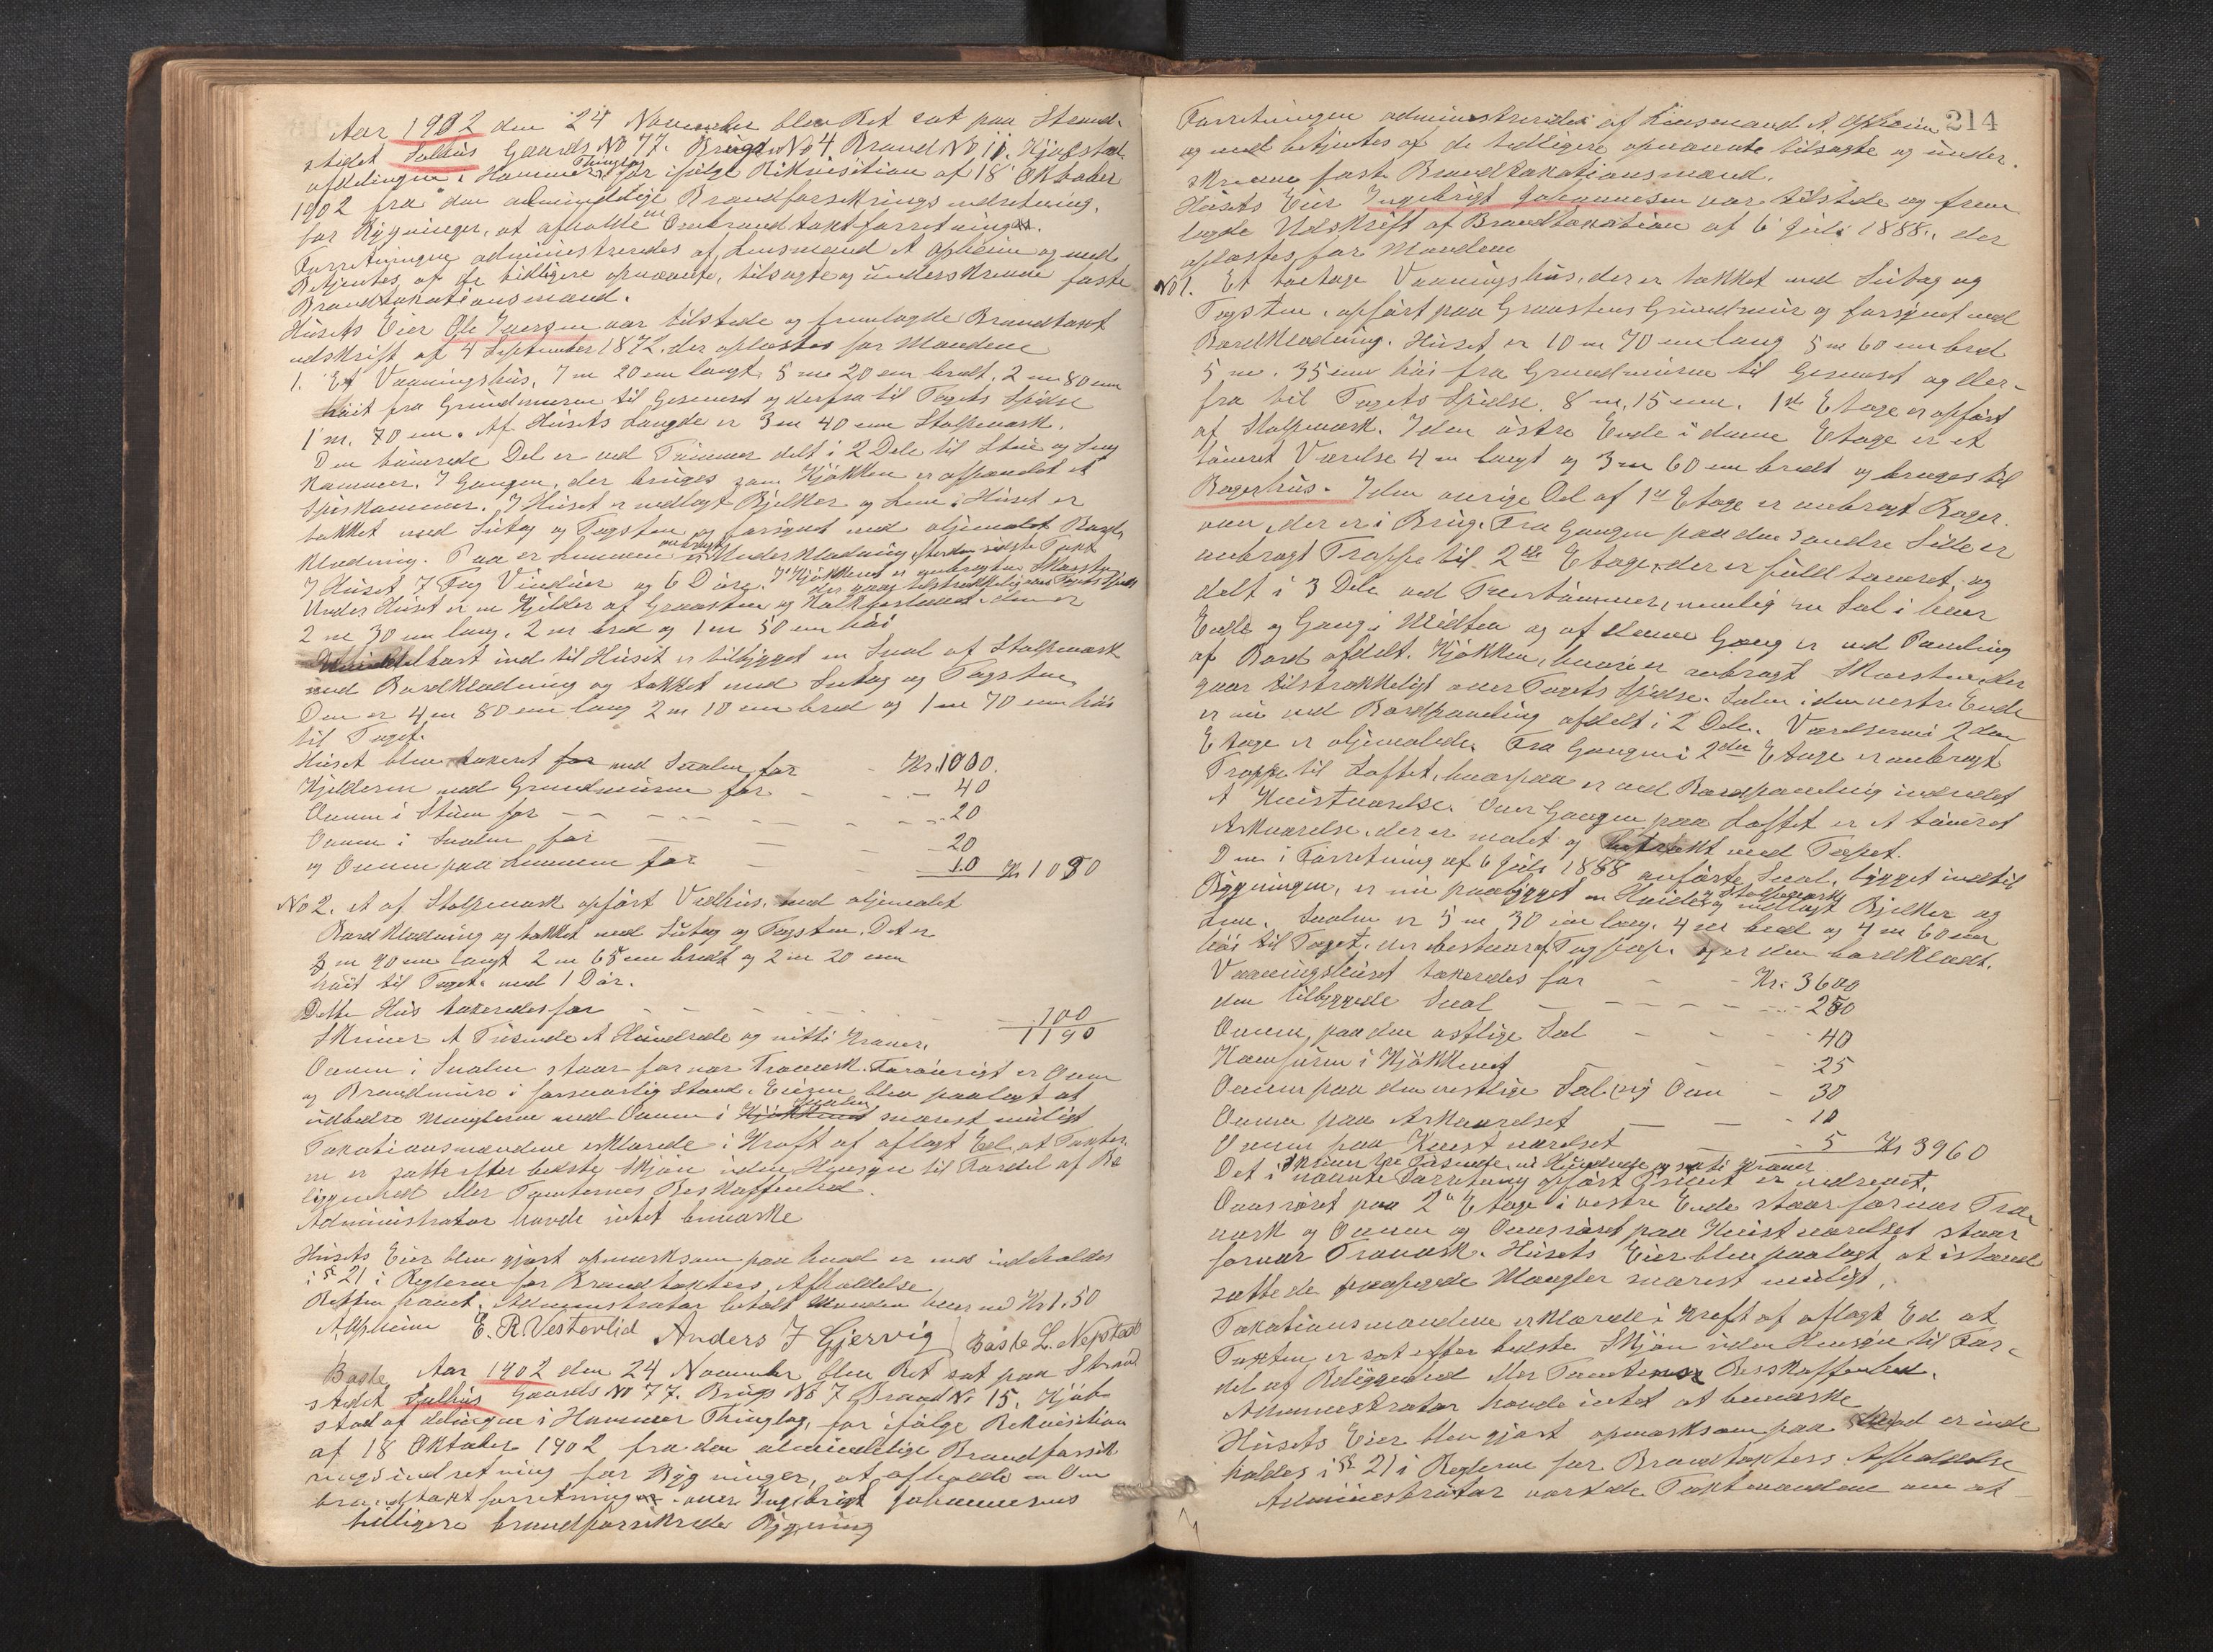 Aar 1902 den 24 November blev Ret sat paa Strand-
stedet Salhus Gaards No 77. Brugs No 4 Brand No 11. Kjøbstad
afdelingen i Hammer Thinglag for ifølge Rikvisition af 18 Oktober
1902 fra den almindelige Brandforsikrings indretning,
for Bygninger, at afholde en Ombrandtaxtforretning.
Forretningen administreredes af Lensmand A Opheim og med
Betjentes af de tidligere opnævnte, tilsagte og underskrevne faste
Brandtaxationsmænd.
Husets Eier Ole Iversen var tilstede og fremlagde Brandtaxt
udskrift af 4 September 1872. der oplæstes for Mændene
1. Et Vaaningshus, 7 m 20 cm langt, 5 m 20 cm bredt, 2 m 80 cm
høit fra Grundmuren til Gesemset og derfra til Tagets Spidse
1 m. 70 cm. Af Husets Længde er 3 m 40 cm Stolpeværk.
Den tømrede Del er ved Tømmer delt i 2 Dele til Stue og Seng
kammer. I Gangen, der bruges som Kjøkken er afpanelet et
Spiskammer. I Huset er indlagt Bjelker og Lem. Huset er
tækket med Sutag og Tagsten og forsynet med oljemalet Bord
klædning. Paa er Lemmen anbragt Underklædning siden sidste Taxt
I Huset 7 Fag Vinduer og 6 Døre. I Kjøkkenet er anbragt en Skorsten
der gaar tilstrækkelig over Tagets Spids
Under Huset er en Kjelder af Graasten og Kalkpudset. den er
2 m 30 cm lang, 2 m bred og 1 m 50 cm høi
ind til Huset er tilbygget en Sval af Stolpeværk
med Bordklædning og tækket med Sutag og Tagsten
Den er 4 m 80 cm lang 2 m 10 cm bred og 1 m 70 cm høi
til Taget.
Huset blev taxeret for med Svalen for - Kr. 1000.
Kjelderen med Grundmuren for - - - 40
Ovnen i Stuen for - - - - - 20
Ovnen i Svalen for - - - 20
og Ovnen paa Lemmen for - - 10 Kr 1090
No 2. et af Stolpeværk opført Vedhus, med oljemalet
Bordklædning og tækket med Sutag og Tagsten. Det er
3 m 90 cm langt 2 m 65 cm bredt og 2 m 20 cm
høit til Taget. med 1 Dør.
Dette Hus taxeredes for - - - - - 100
Skriver Et Tusende Et Hundrede og nitti Kroner. 1190
Ovnen i Svalen staar for nær Træværk. Forøvrigt er Ovne
og Brandmure i forsvarlig Stand. Eieren blev paalagt at
udbedre Manglerne med Ovnen i Kjøkkenet Svalen snarest muligt
Taxationsmændene erklærede i Kraft af aflagt Eed, at Taxter
ne er satte efter bedste Skjøn uden Hensyn til Fordel af Be
liggenhed eller Tomternes Beskaffenhed.
Administrator havde intet bemærke
Husets Eier blev gjort opmærksom paa hvad er inde indholdes
i § 21 i Reglerne for Brandtaxters Afholdelse
Retten hævet. Administrator betalt Mændene hver med Kr 1.50
A Opheim E. R. Vestervlid Anders J Gjervig Baste L. Nepstad
Baste Aar 1902 den 24 November blev Ret sat paa Strand
stedet Salhus Gaards No 77. Brugs No 7 Brand No 15. Kjøb
stadafdelingen i Hammer Thinglag, for ifølge Rekvisition
af 18 Oktober 1902 fra den almindelige Brandforsik
ringsindretning for Bygninger, at afholde en Om
brandtaxtforretning over Ingebrigt Johannesens
tidligere brandforsikrede Bygning
214
Forretningen administreredes af Lensmand A. Opheim
og med betjentes af de tidligere opnævnte tilsagte og under-
skrevne faste Brandtaxationsmænd.
Husets Eier Ingebrigt Johannesen var tilstede og frem
lagde Udskrift af Brandtaxation af 6 Juli 1888., der
oplæstes for Mændene
No 1. Et toetage Vaaningshus, der er tækket med Sutag og
Tagsten, opført paa Graastens Grundmur og forsynet med
Bordklædning. Huset er 10 m 70 cm lang 5 m 60 cm bred
5 m. 35 cm høi fra Grundmuren til Gesemset og der-
fra til Tagets Spidse 8 m. 15 cm. 1ste Etage er opført
af Stolpeværk. I den østre Ende i denne Etage er et
tømret Værelse 4 m langt og 3 m 60 cm bredt og bruges til
Bagerhus. I den øvrige Del af 1st Etage er anbragt Bager-
ovn, der er i Brug. Fra Gangen paa den søndre Side er
anbragt Trappe til 2den Etage, der er fuldt tømret, og
delt i 3 Dele ved Tvertømmer, nemlig en Sal i hver
Ende og Gang i Midten og af denne Gang er ved Paneling
af Bord afdelt Kjøkken, hvori er anbragt Skorsten, der
gaar tilstrækkeligt over Tagets Spidse. Salen i den vestre Ende
er nu ved Bordpaneling afdelt i 2 Dele. Værelserne i 2den
Etage er oljemalede. Fra Gangen i 2den Etage er anbragt
Trappe til Loftet, hvorpaa er ved Bordpaneling indredet
et Kvistværelse. Over Gangen paa Loftet er et tømret
Arkværelse, der er malet og betrukket med Tapet.
Den i Forretning af 6 Juli 1888 anførte Sval, bygget indtil
Bygningen, er nu paabygget en Høide af Stolpeværk og indlagt Bjelker og
Lem. Svalen er 5 m 30 cm lang, 4 m bred og 4 m 60 cm
høi til Taget, der bestaar af Tagpap. og er den bordklædt.
Vaaningshuset taxeredes for - - Kr. 3600
den tilbyggede Sval - - - - - 250
Ovnen paa den østlige Sal - - - 40
Komfuren i Kjøkkenet - - 25
Ovnen paa den vestlige Sal (ny Ovn - 30
Ovnen paa Arkværelset - - - 10
Ovnen paa Kvistværelset - - 5 Kr 3960
Skriver tre Tusende, ni Hundrede og seksti Kroner
Det i nævnte Forretning opført er nedrevet.
Ovnsrøret paa 2n Etage i vestre Ende staar for nær Træ
værk og Ovnen og Ovnsrøret paa Kvistværelset staar
for nær Træværk. Husets Eier blev paalagt at istand
sætte de paapegede Mangler snarest muligt.
Taxationsmændene erklærede i Kraft af aflagt Ed at
Taxten er sat efter bedste Skjøn uden Hensyn til For-
del af Beliggenhed eller Tomtens Beskaffenhed.
Administrator havde intet at bemærke
Husets Eier blev gjort opmærksom paa hvad er inde
holdes i § 21 i Reglerne for Brandtaxters Afholdelse
Administrator varslede Taxtmændene om at